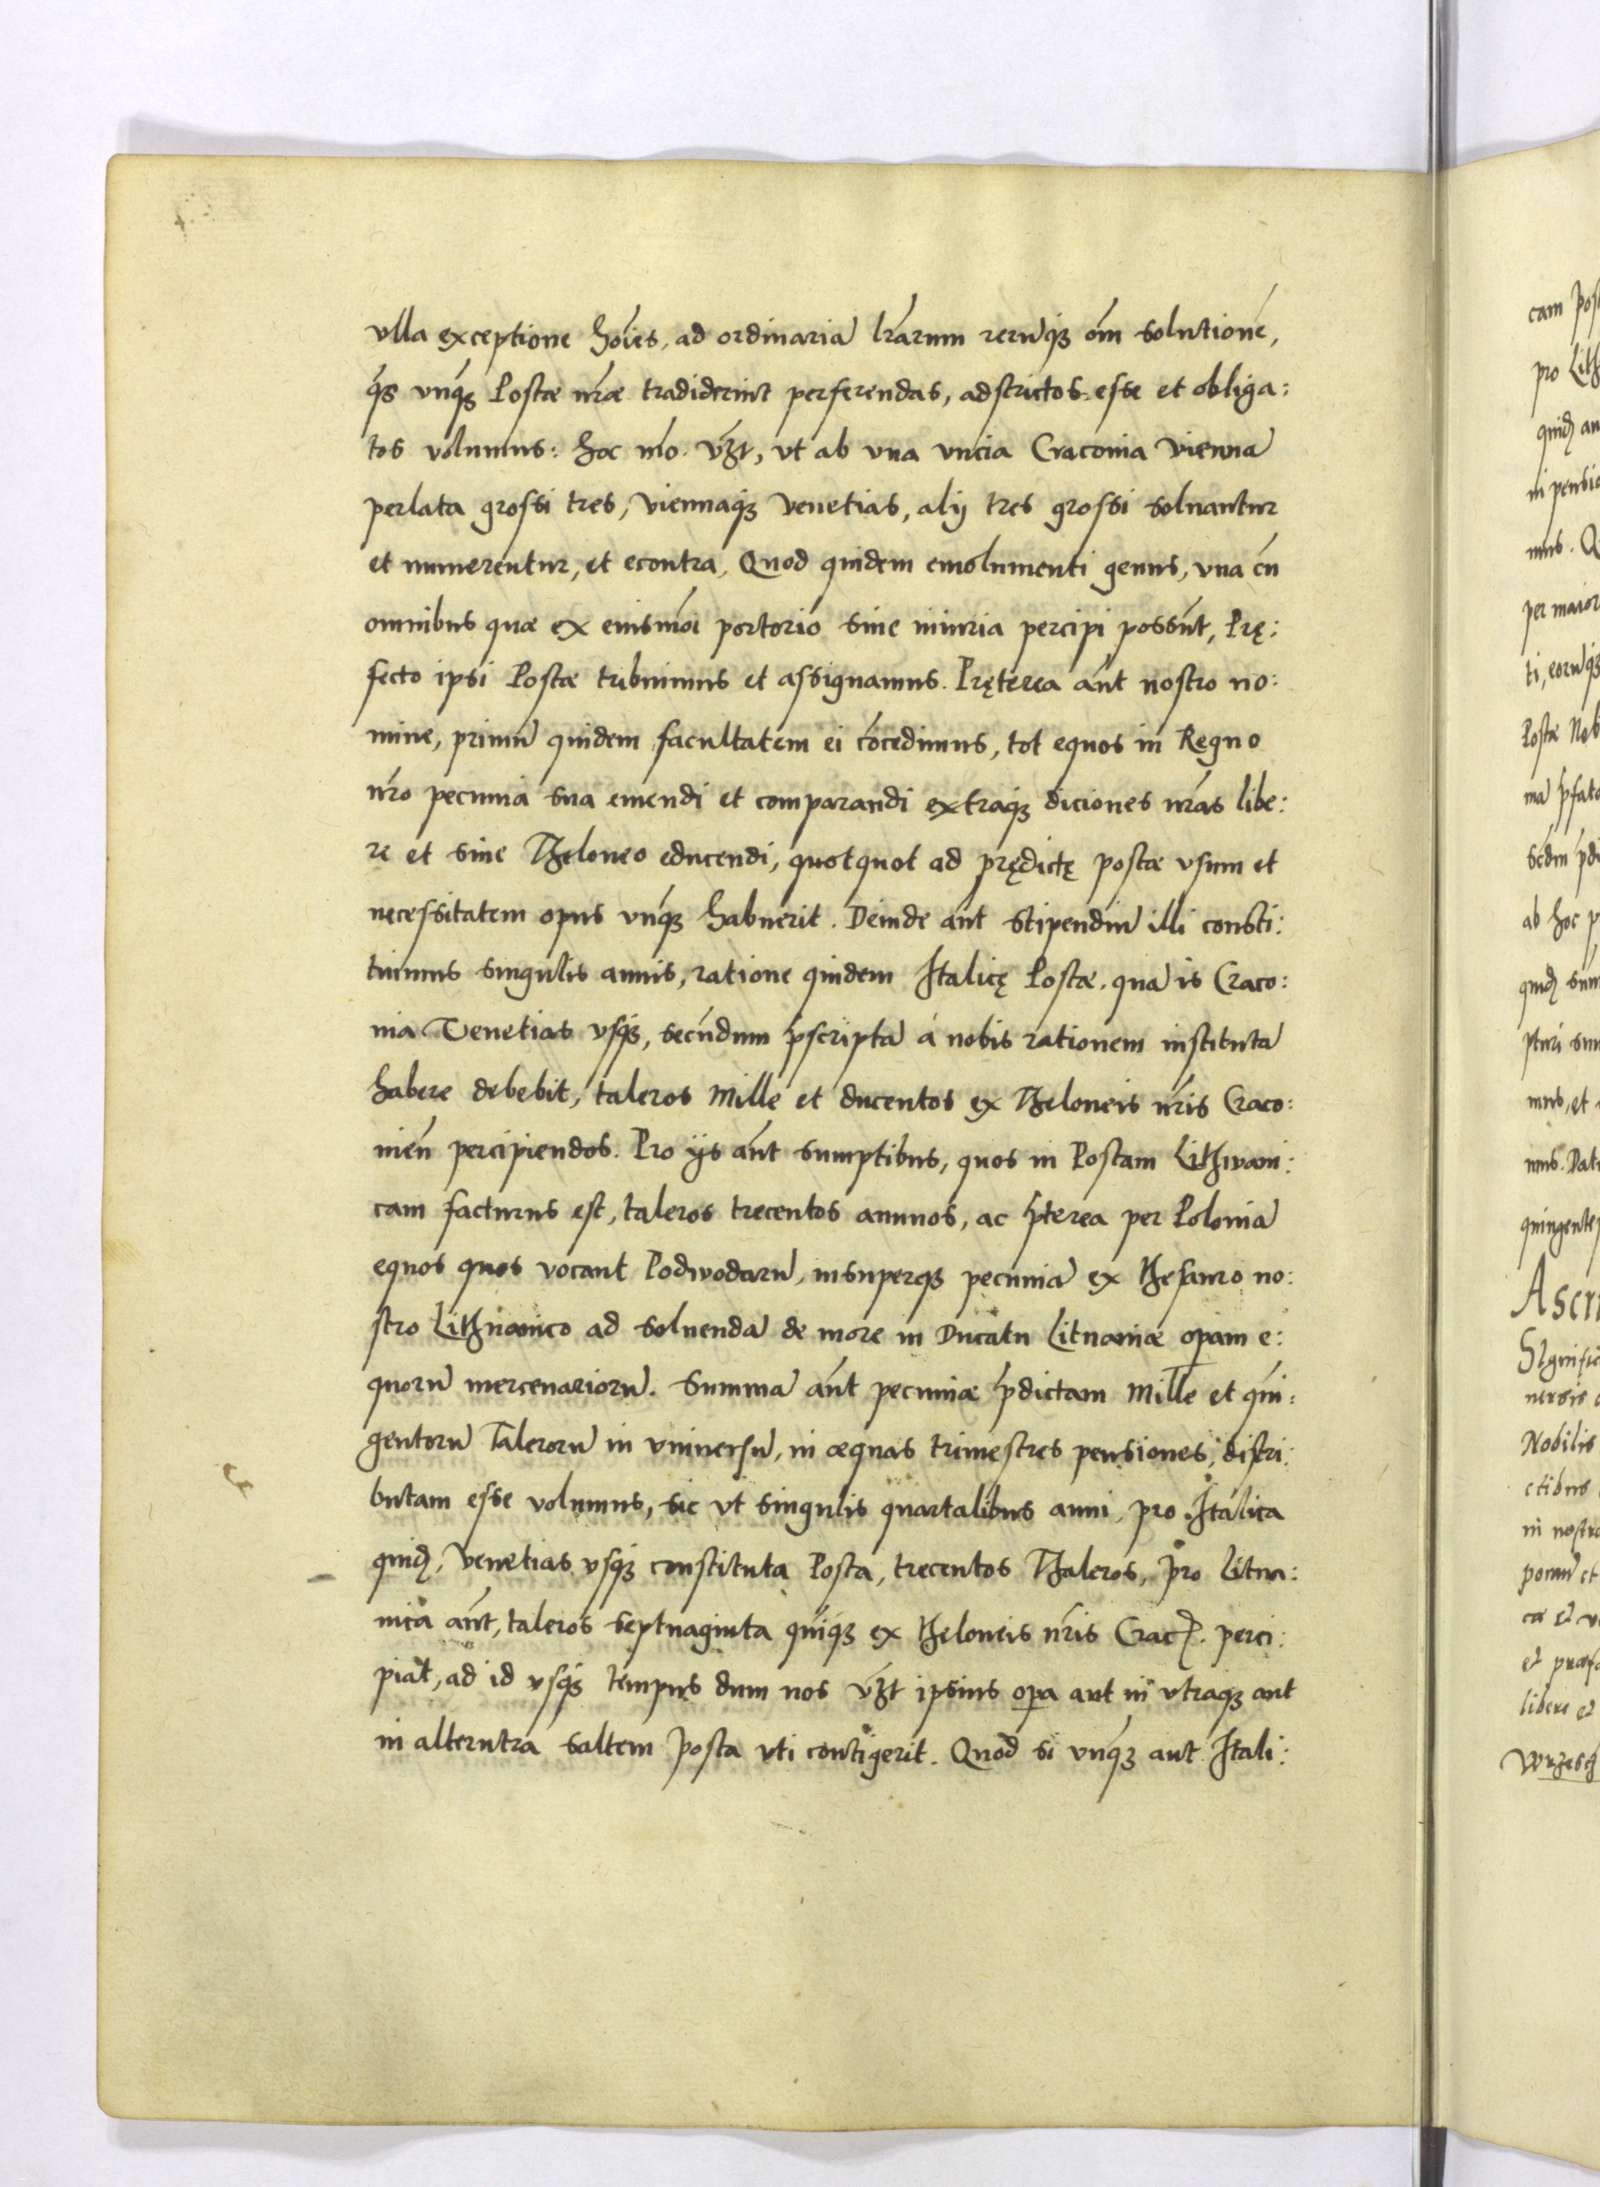 vlla exceptione hoies, ad ordinariã lrarum rerũq₃ om̃ solutionẽ,
q̃s vnq̃₃ Postæ nræ tradiderint perferendas, adstrictos esse et obliga:
tos volumus: hoc mõ v₃t, vt ab vna vncia Cracouia viennã
perlata grossi tres, viennaq₃ venetias, alij tres grossi soluantur
et numerentur, et econtra, Quod quidem emolumenti genus, vna cũ
omnibus quæ ex eiusmõi portorio sine iniuria percipi possũt, Prę:
fecto ipsi Postæ tribuimus et assignamus. Pręterea aũt nostro no:
mine, primũ quidem facultatem ei cõcedimus, tot equos in Regno
nr̃o pecunia sua emendi et comparandi extraq₃ diciones nr̃as libe:
re et sine Theloneo educendi, quotquot ad prędictę postæ vsum et
necessitatem opus vnq̃₃ habuerit. Deinde aũt stipendiũ illi consti:
tuimus singulis annis, ratione quidem Italicę Postæ, quã is Craco:
uia Venetias vsq₃, secũdum p̃scriptã á nobis rationem institutã
habere debebit, taleros Mille et ducentos ex Theloneis nr̃is Craco:
uieñ percipiendos. Pro ijs aũt sumptibus, quos in Postam Lithwani:
cam facturus est, taleros trecentos annuos, ac p̃terea per Poloniã
equos quos vocant Podwodarũ, insuperq₃ pecuniã ex thesauro no:
stro Lithuanico ad soluendã de more in Ducatu Lituaniæ opam e:
quorũ mercenariorũ. Summã aũt pecuniæ p̃dictam Mille et qũi:
gentorũ Talerorũ in vniuersũ, in æquas trimestres pensiones, distri:
butam esse volumus, sic vt singulis quartalibus anni, pro Italica
quid̃, Venetias vsq₃ constituta Posta, trecentos Thaleros, Pro Litua:
nica aũt, taleros septuaginta qũiq₃ ex theloneis nr̃is Crac̃. perci:
piat, ad id vsq₃ tempus dum nos v₃t ipsius opa aut in vtraq₃ aut
in alterutra saltem Posta vti contigerit. Quod si vnq̃₃ aut Itali:
cam
pro Lith
quid̃
in pensio
mus.
per maior
ti, eorũq₃
Postæ
ab hoc
mus, et
mus.
Nobilis
in nostr
libere